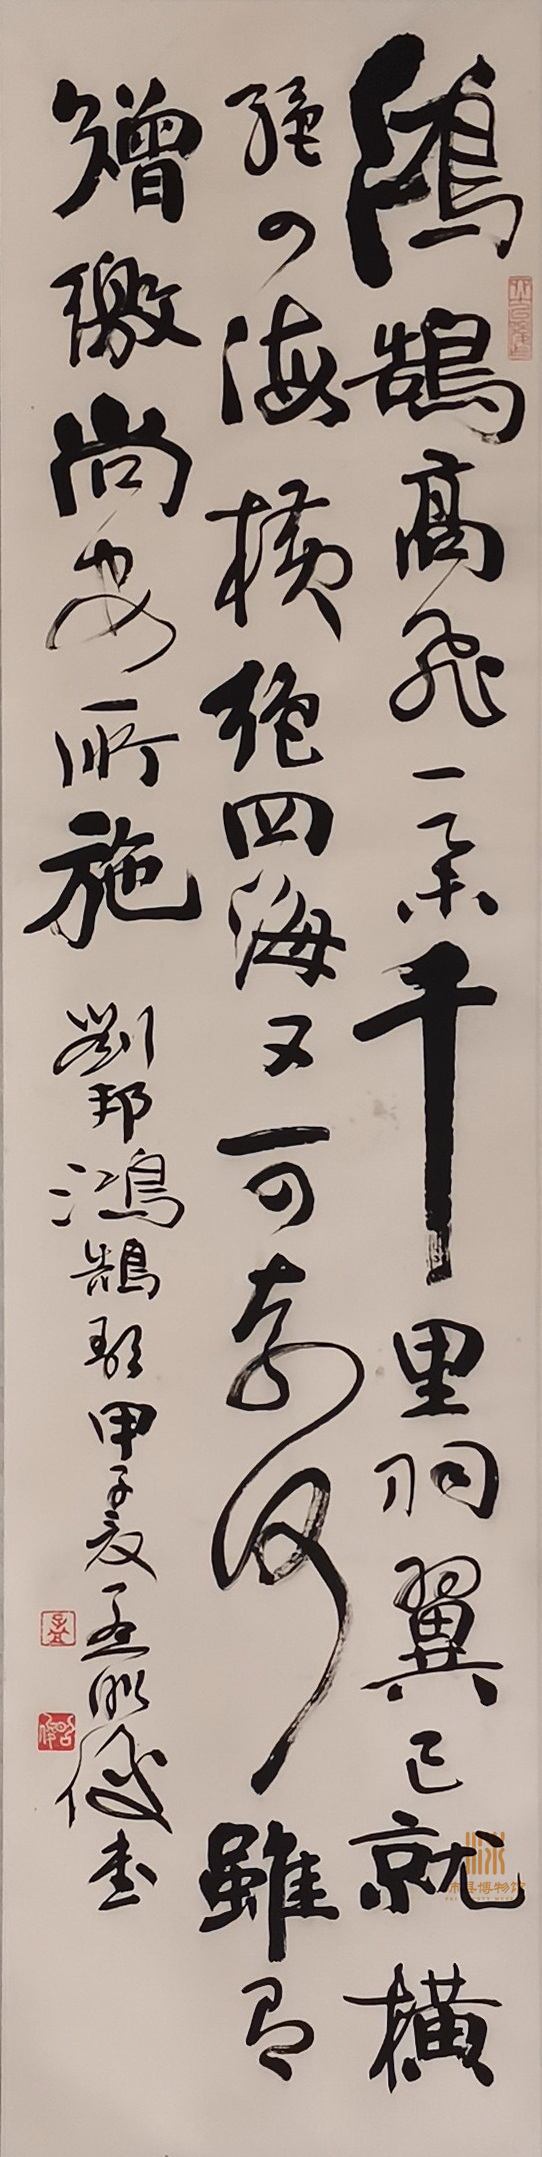 鴻鵠高飛一舉千里羽翼已就橫
絕四海橫絕四海又可奈何雖有
矰繳尚安所施
劉邦鴻鵠歌甲子夏孟昭俊書
博物馆